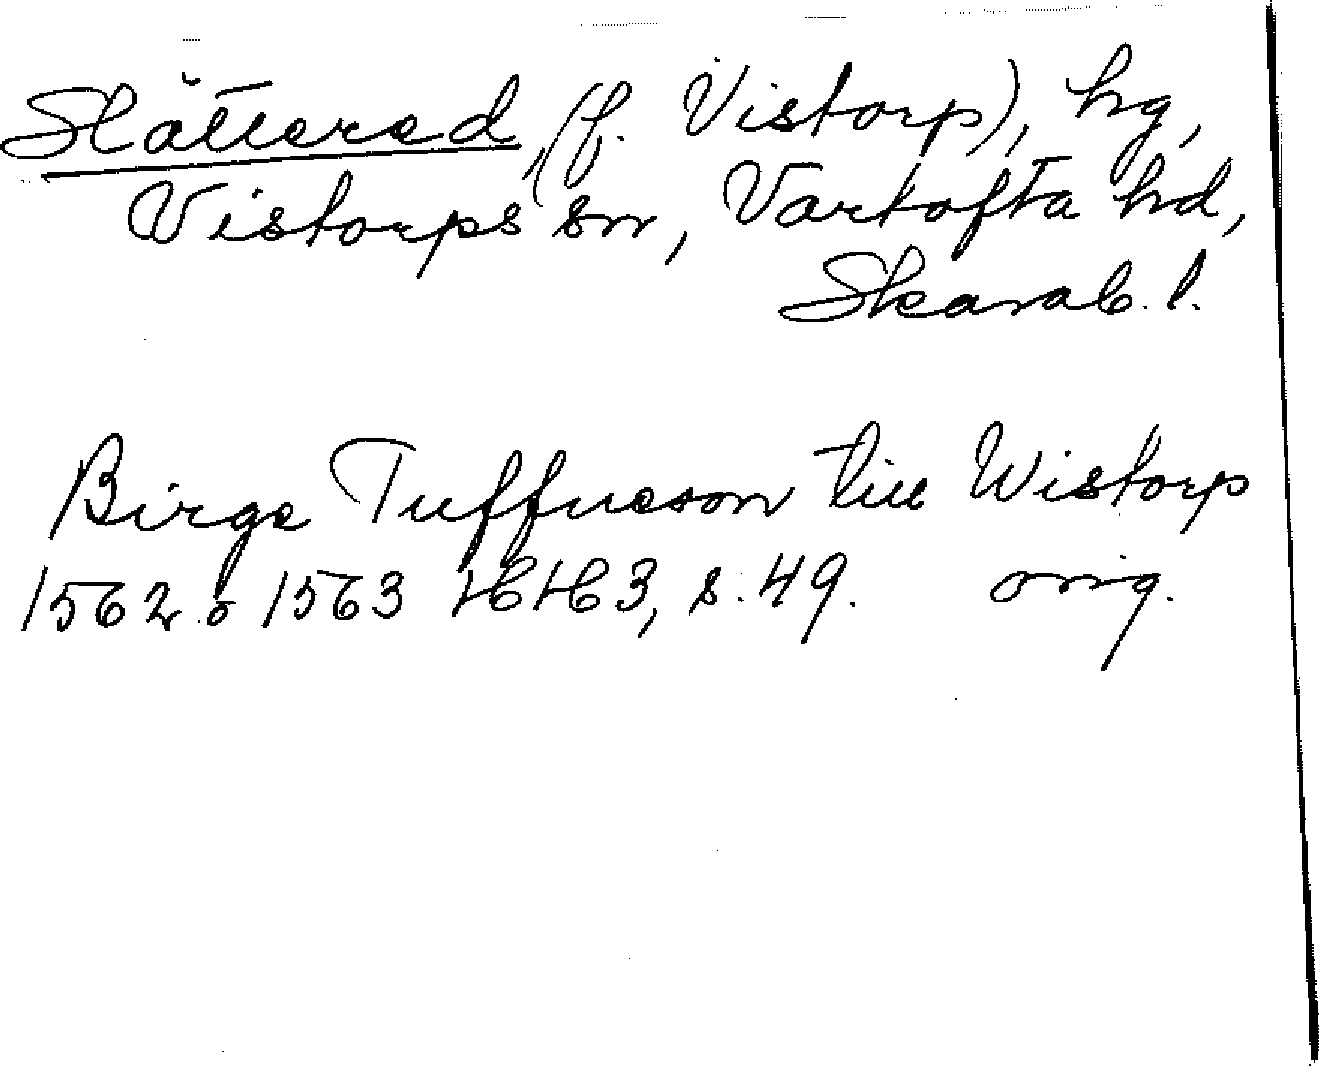 Slättered, (f. Vistorp), hg,
Vistorps sn, Vartofta hd,
Skarab. l.
Birge Tuffueson till Wistorp
1562 o 1563 HHH3, s. 49. orig.